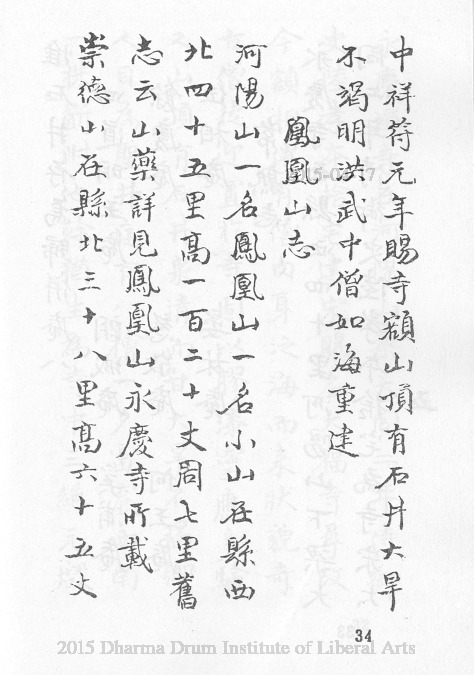 中祥符元年賜寺額山頂有石井大旱
不竭明洪武中僧如海重建
鳳凰山志
河陽山一名鳳凰山一名小山在縣西
北四十五里高一百二十丈周七里舊
志云山藥詳見鳳凰山永慶寺所載
崇德山在縣北三十八里高六十五丈
34
2015 Dharma Drum Institute of Liberal Arts